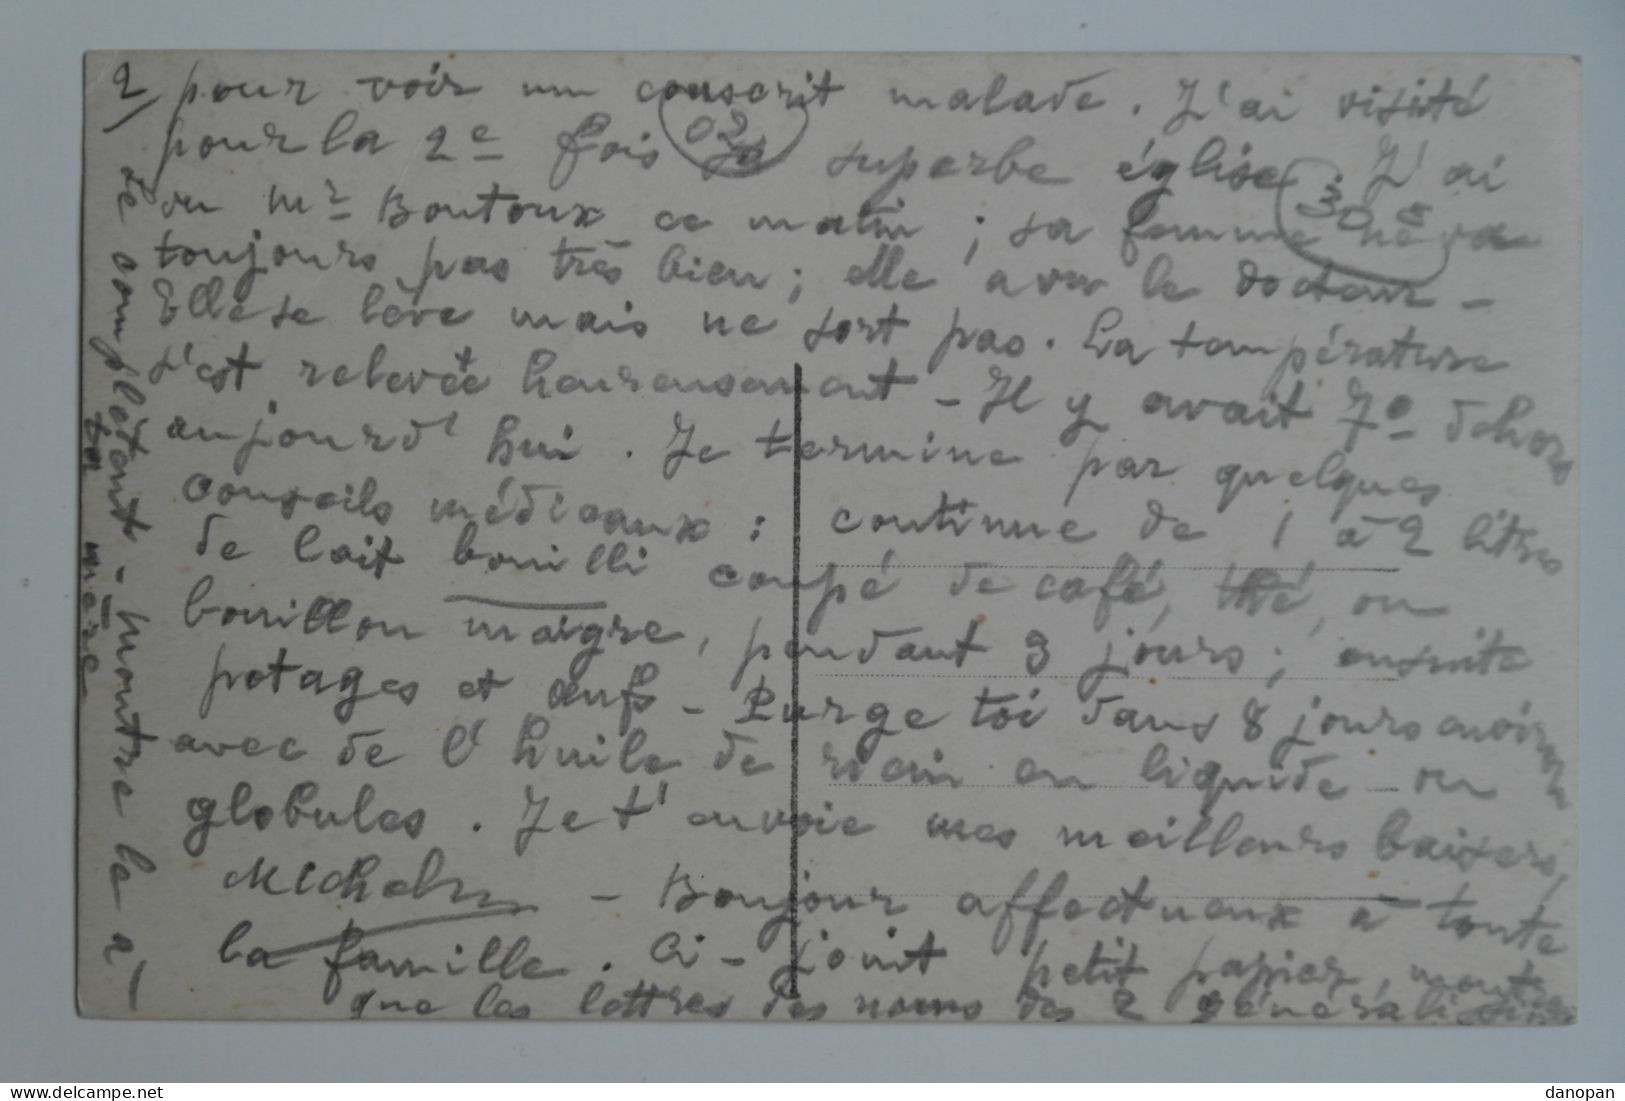 2/ pour voir un conscrit malade. J'ai visité
pour la 2e fois sa superbe église. J'ai
vu Mr Boutoux ce matin ; sa femme ne va
toujours pas très bien ; elle a vu le docteur -
Elle se lève mais ne sort pas. La température
s'est relevée heureusement - Il y avait 7° dehors
aujourd'hui. Je termine par quelques
conseils médicaux : continue de 1 à 2 litres
de lait bouilli coupé de café, thé, ou
bouillon maigre, pendant 3 jours ; ensuite
potages et œufs - Purge toi dans 8 jours environ
avec de l'huile de ricin en liquide - ou
globules. Je t'envoie mes meilleurs baisers,
Michel - Bonjour affectueux à toute
la famille. Ci-joint petit papier, montre
que les lettres des noms des 2 généralissimes
se complètent - montre le à
ta mère
02
30 8
delcampe.net
danopan